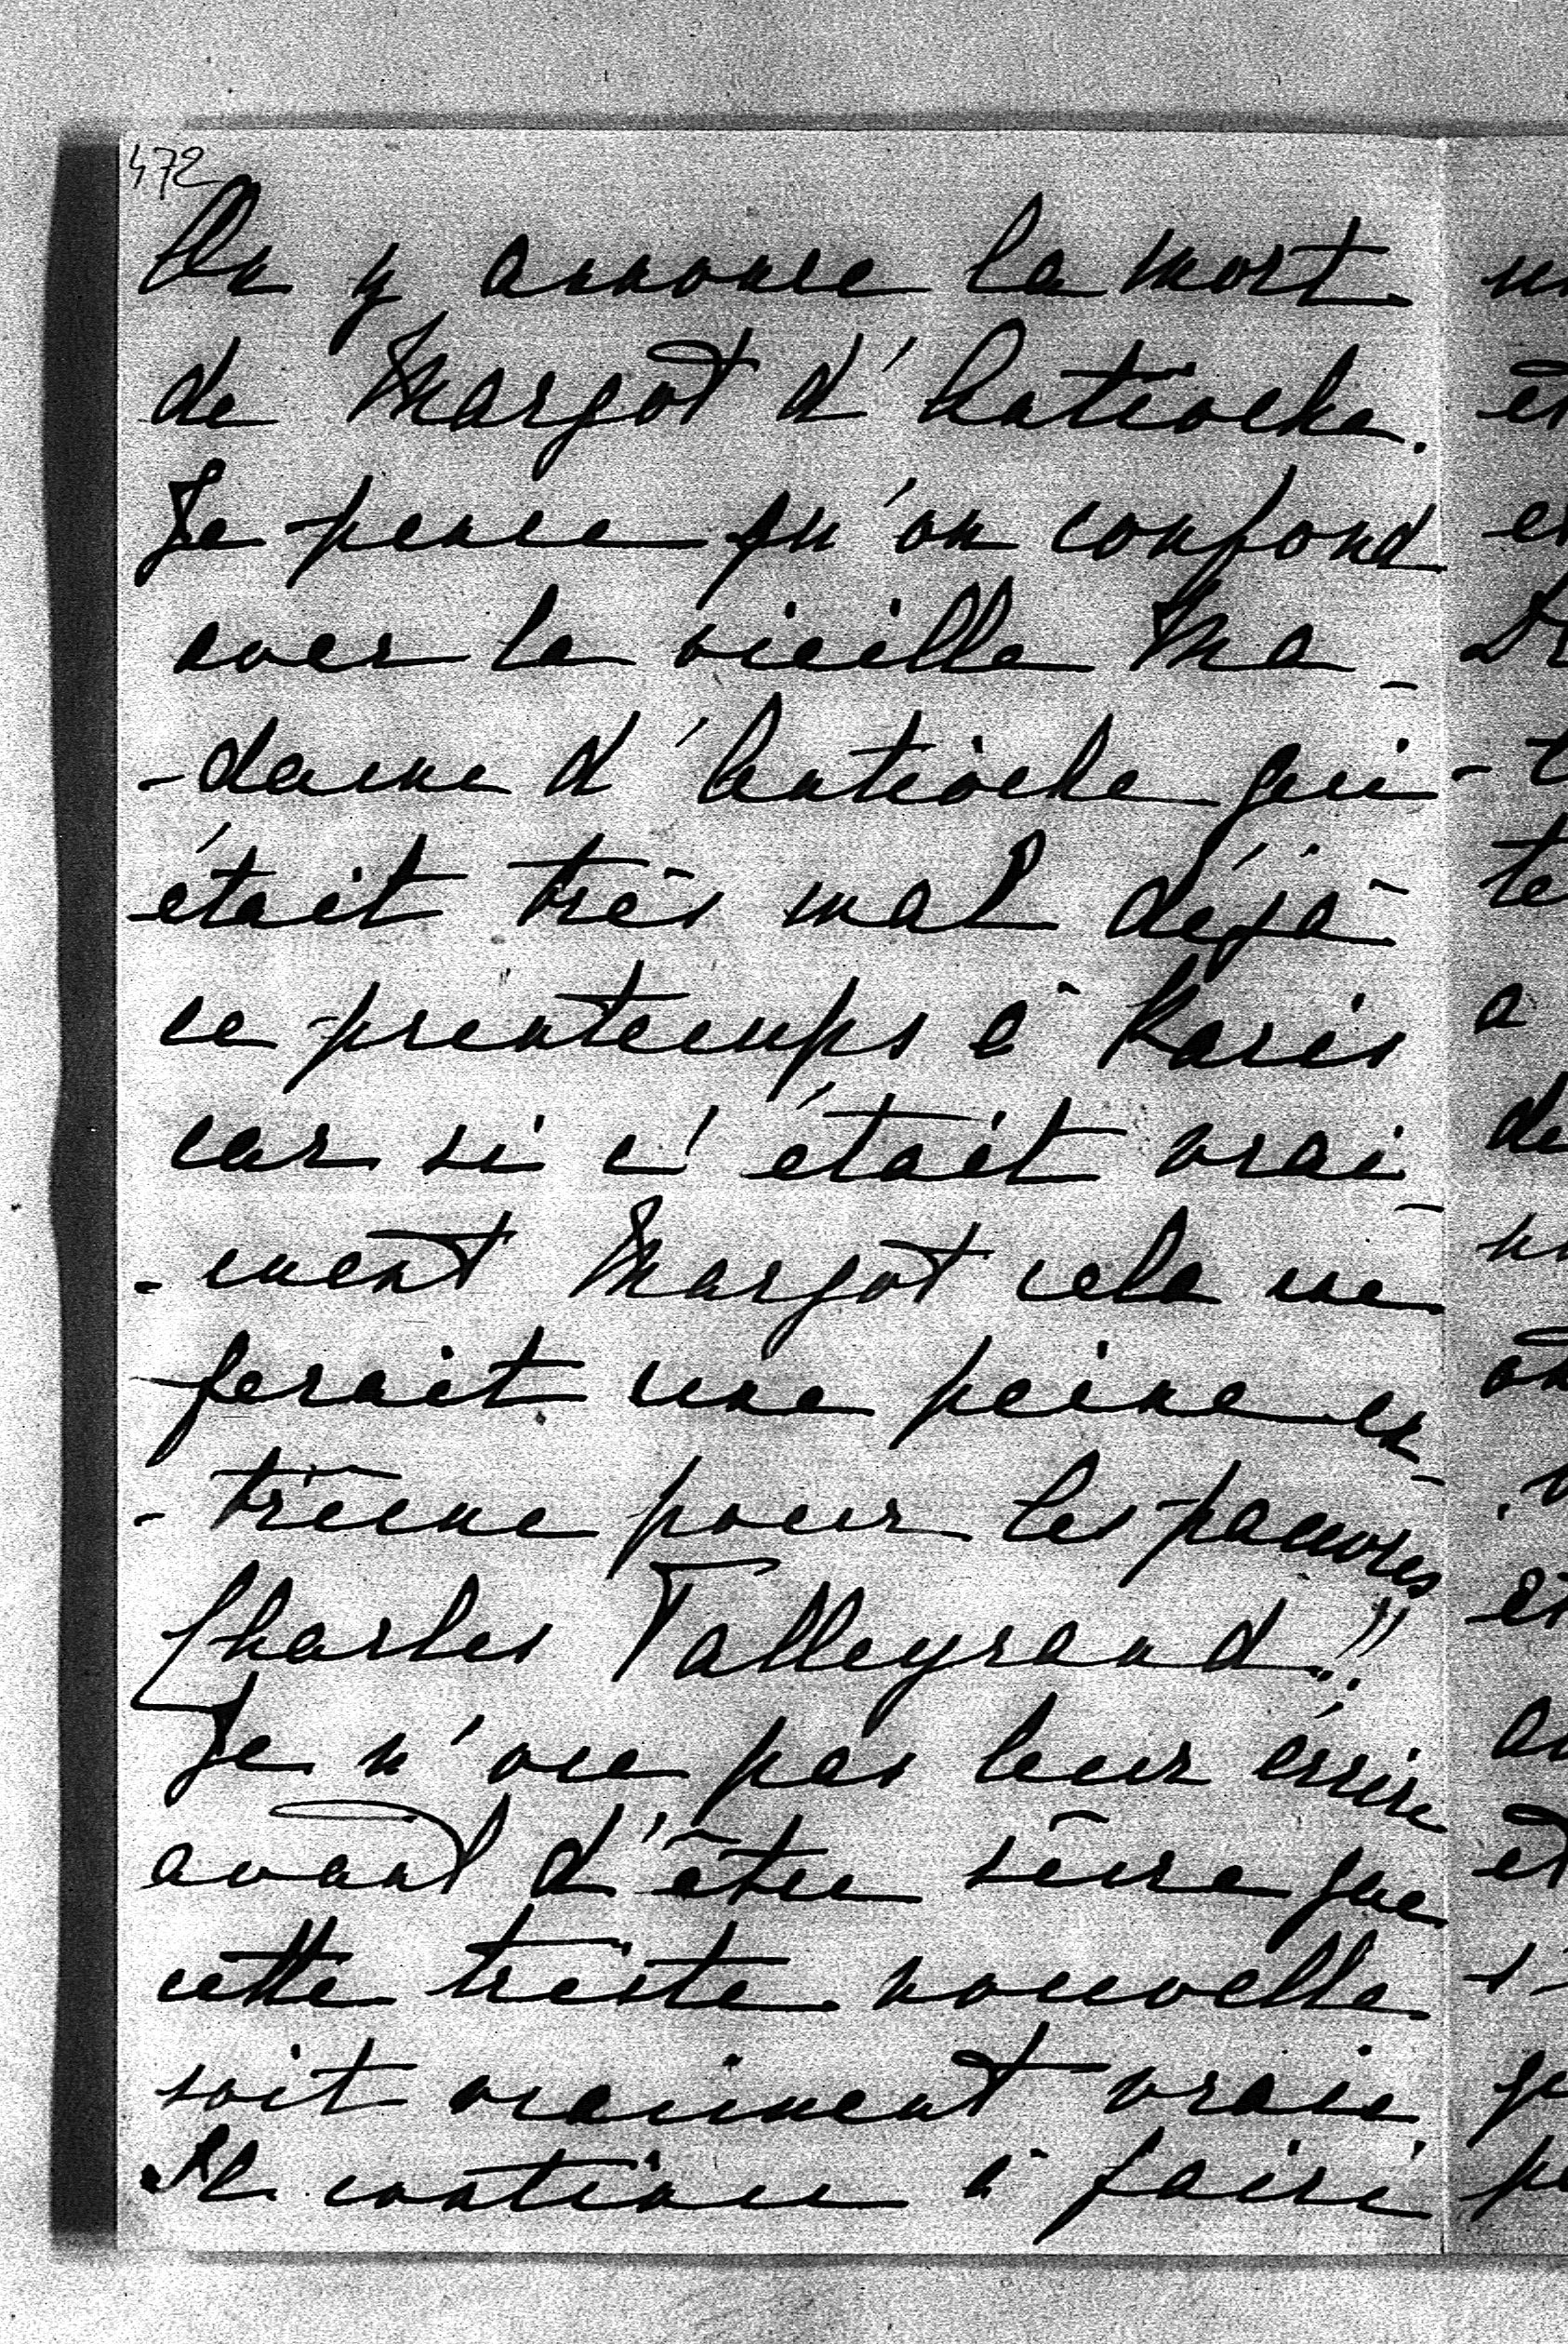 472
On y annonce la mort
de Margot d'Antioche.
Je pense qu'on confond
avec la vieille Ma-
-dame d'Antioche qui
était très mal déjà
ce printemps à Paris
car si c'était vrai-
-ment Margot cela me
ferait une peine ex-
-trême pour les pauvres
Charles Talleyrand!!
Je n'ose pas leur écrire
avant d'être sûre que
cette triste nouvelle
soit vraiment vraie
Il continue à faire